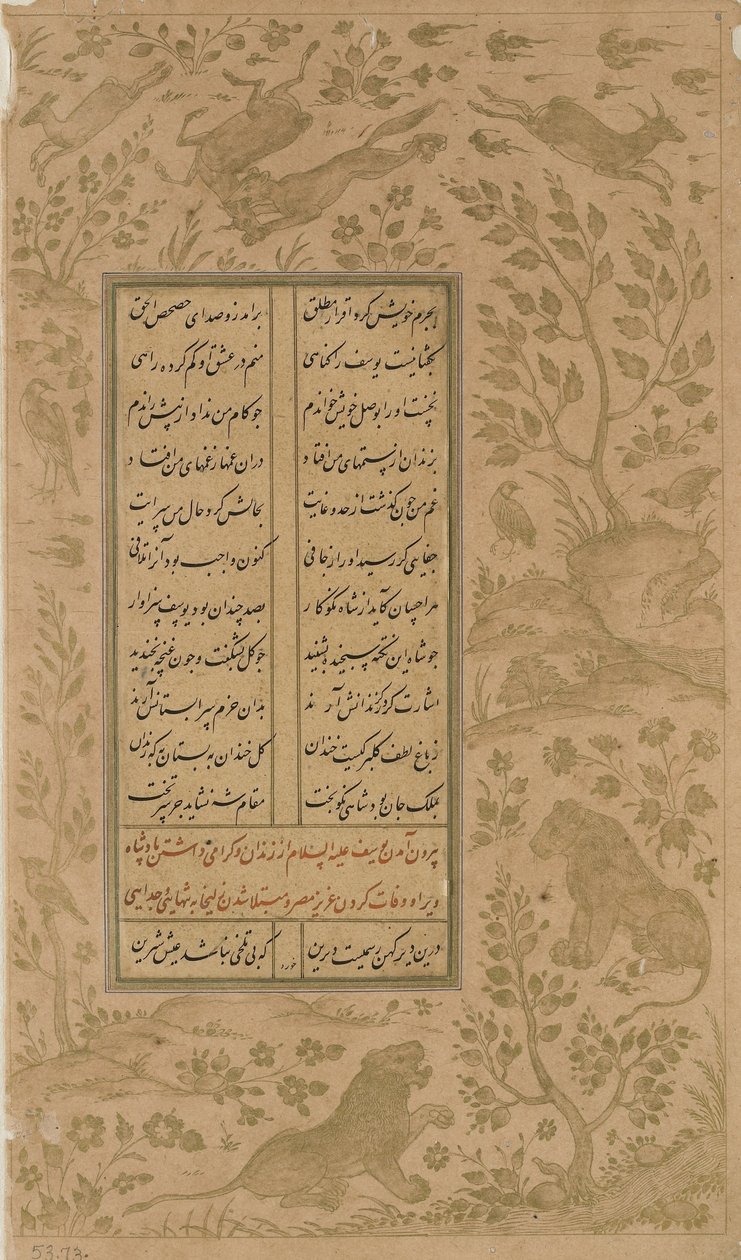 بجرم خویش کرد اقرار مطلق برامد زو صدای حصحص الحق
بگفتا نیست یوسف را کناهی منم در عشق او کم کرده راهی
نخست او را بوصل خویش خواندم جو کام من نداد از پیش راندم
بزندان از ستمهای من افتاد دران غمها زغمهای من افتاد
غم من جون کذشت از حد و غایت بجانش کرد حال من سرایت
جفایی کر رسید او را زجافی کنون واجب بود آنرا تلافی
هر احسان کاید از شاه نکوکار بصد جندان بود یوسف سزاوار
جو شاه این نکته سنجیده بشنید جو کل بشکفت و جون غنجه بخندید
اشارت کرد کز زندانش آرند بدان خرم سرابستانش آرند
زباغ لطف کلبرکیست خندان کل خندان به بستان به که زندان
بملک جان بود شاهی نکوبخت مقام شه نشاید جز سر تخت
بیرون آمدن یوسف علیه السلام از زندان و کرامی داشتن بادشاه
ویرا و وفات کردن عزیز مصر و مبتلا شدن زلیخا به تنهایی و جدایی
درین دیر کهن رسمیست دیرین که بی تلخی نباشد عیش شیرین
خورد
53.73.